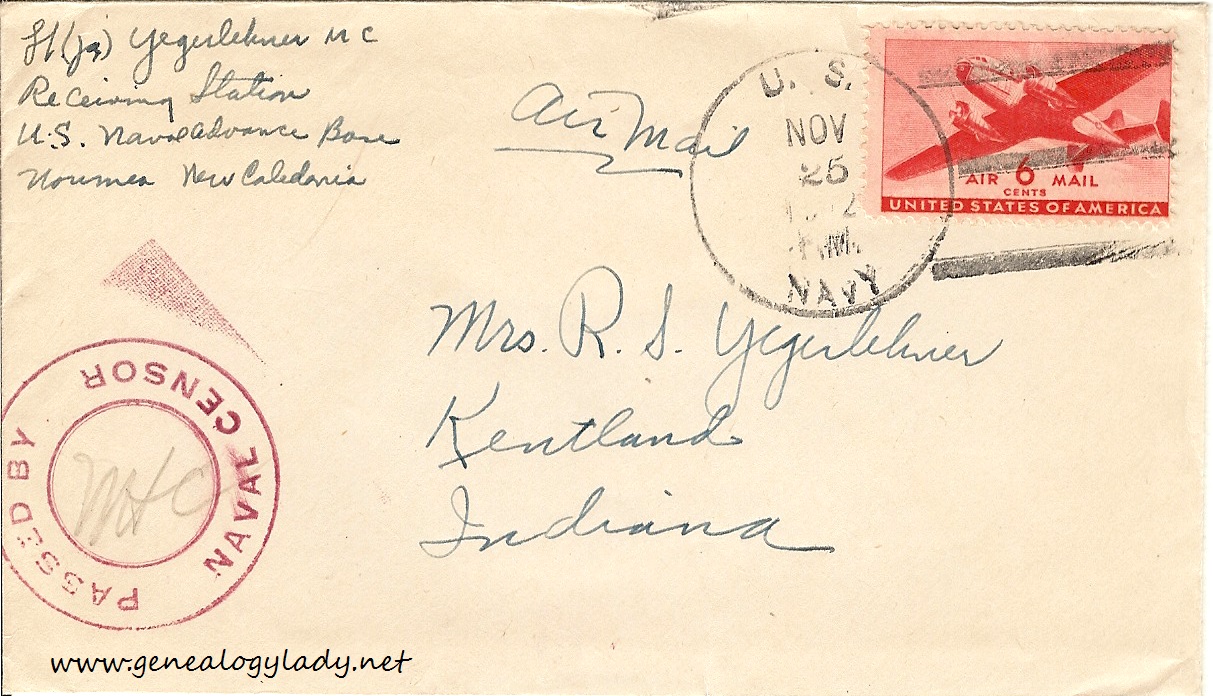 Lt (jg) Yegerlehner MC
Receiving Station
U.S. Naval Advance Base
Noumea New Caledonia
Air Mail
U. S.
NOV
25
NAVY
AIR 6 MAIL
CENTS
UNITED STATES OF AMERICA
Mrs. R. S. Yegerlehner
Kentland
Indiana
PASSED BY
NAVAL CENSOR
MHC
www.genealogylady.net